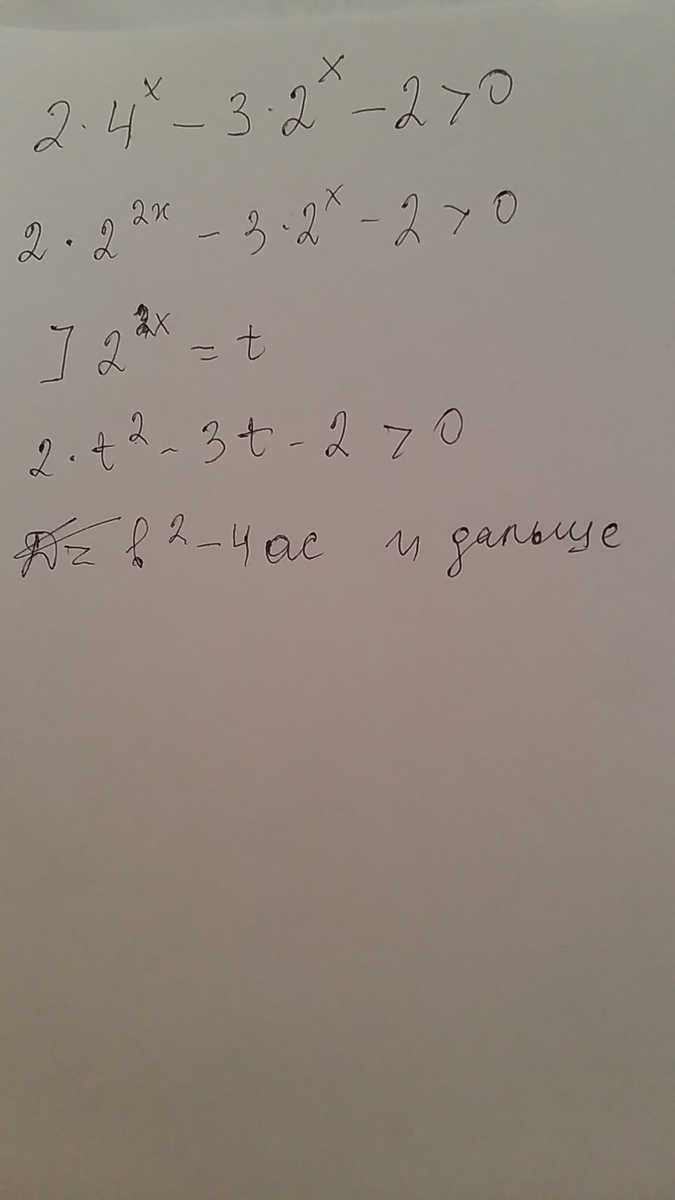 2 · 4^x − 3 · 2^x − 2 > 0
2 · 2^2x − 3 · 2^x − 2 > 0
] 2^2x = t
2 · t^2 − 3t − 2 > 0
D = b^2 − 4ac и дальше